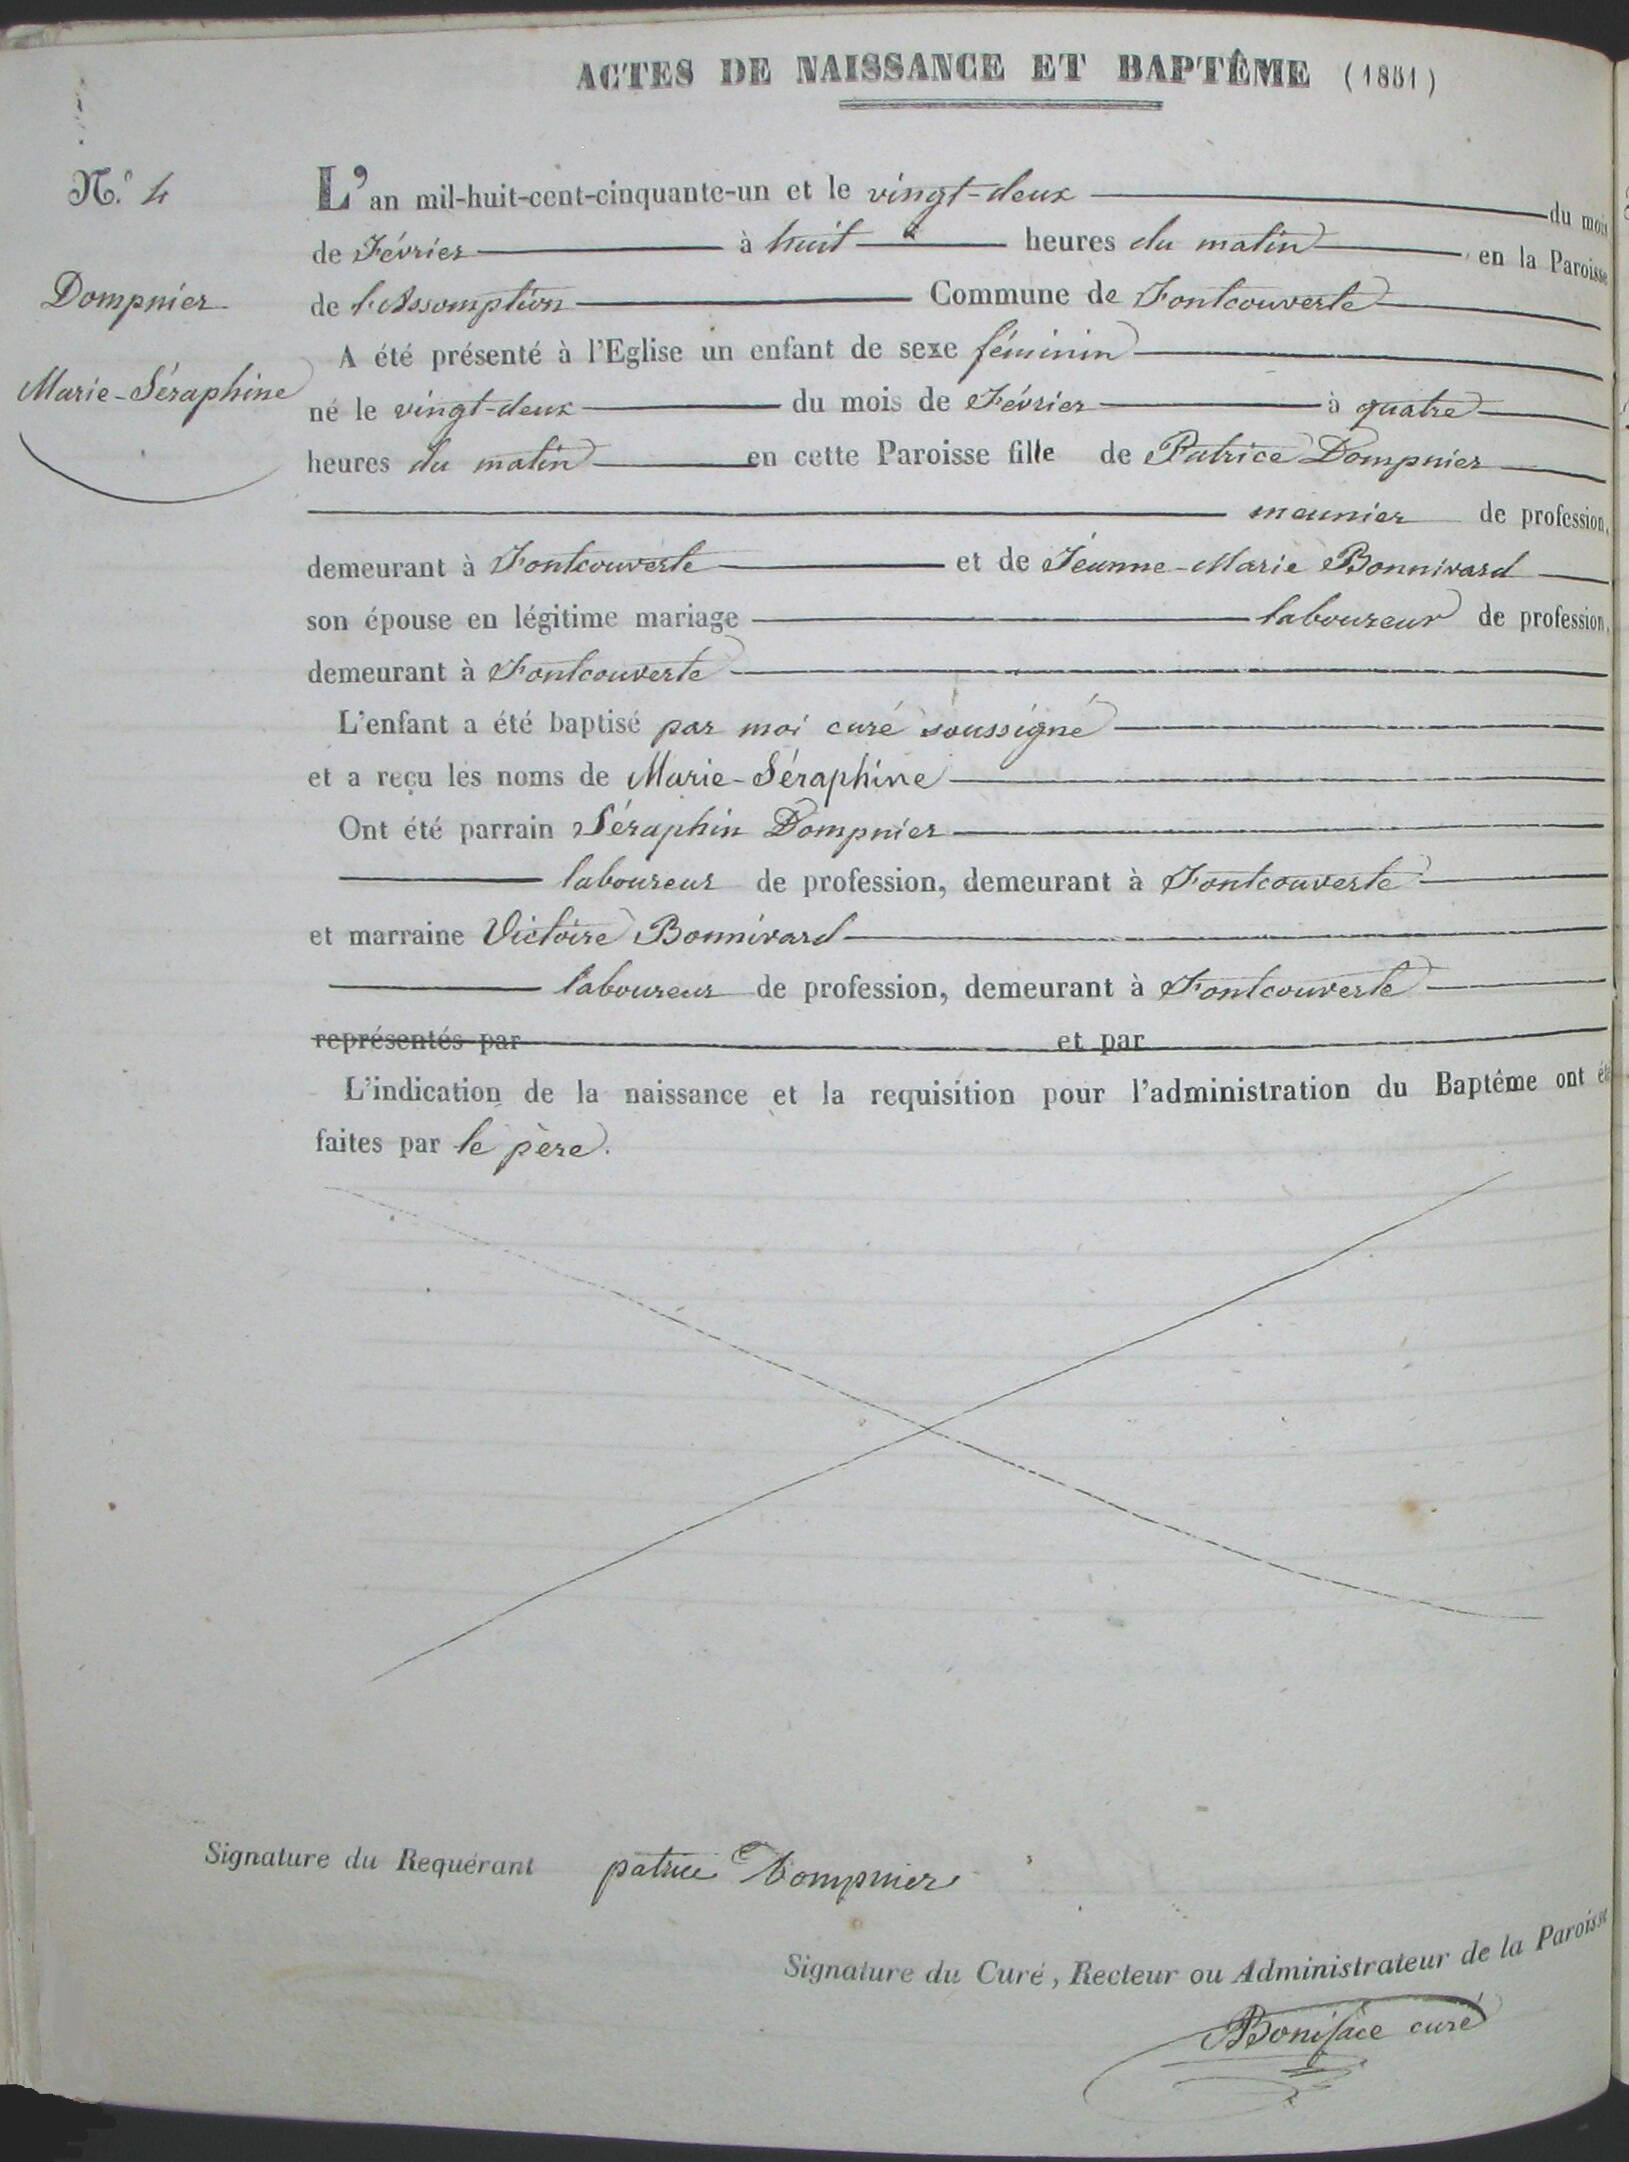 ACTES DE NAISSANCE ET BAPTÊME (1851)
N.° 4
Dompnier
Marie-Séraphine
L'an mil-huit-cent-cinquante-un et le vingt-deux du mois
de Février à huit heures du matin en la Paroisse
de l'Assomption Commune de Fontcouverte
A été présenté à l'Eglise un enfant de sexe féminin
né le vingt-deux du mois de Février à quatre
heures du matin en cette Paroisse fille de Patrice Dompnier
meunier de profession,
demeurant à Fontcouverte et de Jéanne-Marie Bonnivard
son épouse en légitime mariage laboureur de profession,
demeurant à Fontcouverte
L'enfant a été baptisé par moi curé soussigné
et a reçu les noms de Marie-Séraphine
Ont été parrain Séraphin Dompnier
laboureur de profession, demeurant à Fontcouverte
et marraine Victoire Bonnivard
laboureur de profession, demeurant à Fontcouverte
représentés par et par
L'indication de la naissance et la requisition pour l'administration du Baptême ont été
faites par le père.
Signature du Requérant patrice Dompnier
Signature du Curé, Recteur ou Administrateur de la Paroisse
Boniface curé